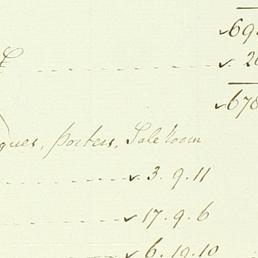 69
26
678
gues, porters, Sale room
3.9.11
17.9.6
6.19.10